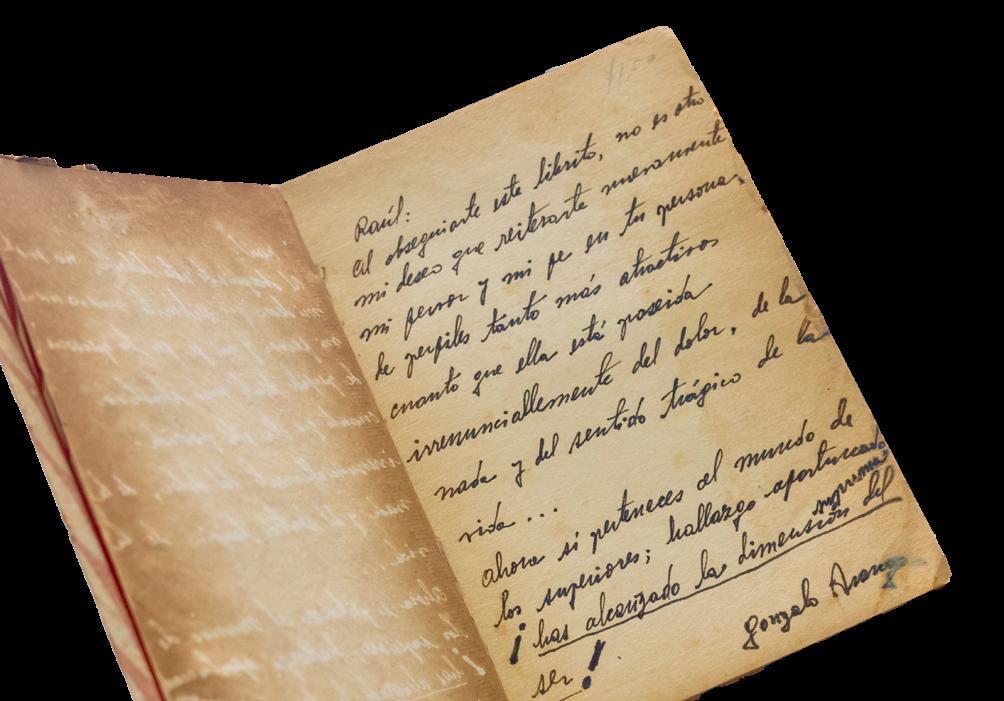 $1,50
Raúl:
al obsequiarte este librito, no es otro
mi deseo que reiterarte meramente
mi fervor y mi fe en tu persona,
de perfiles tanto más atractivos
cuanto que ella está poseida
irrenunciallemente del dolor, de la
nada y del sentido trágico de la
vida...
ahora si perteneces al mundo de
los superiores; hallazgo afortunado
¡has alcanzado la dimensión suprema del
ser!
Gonzalo Arango